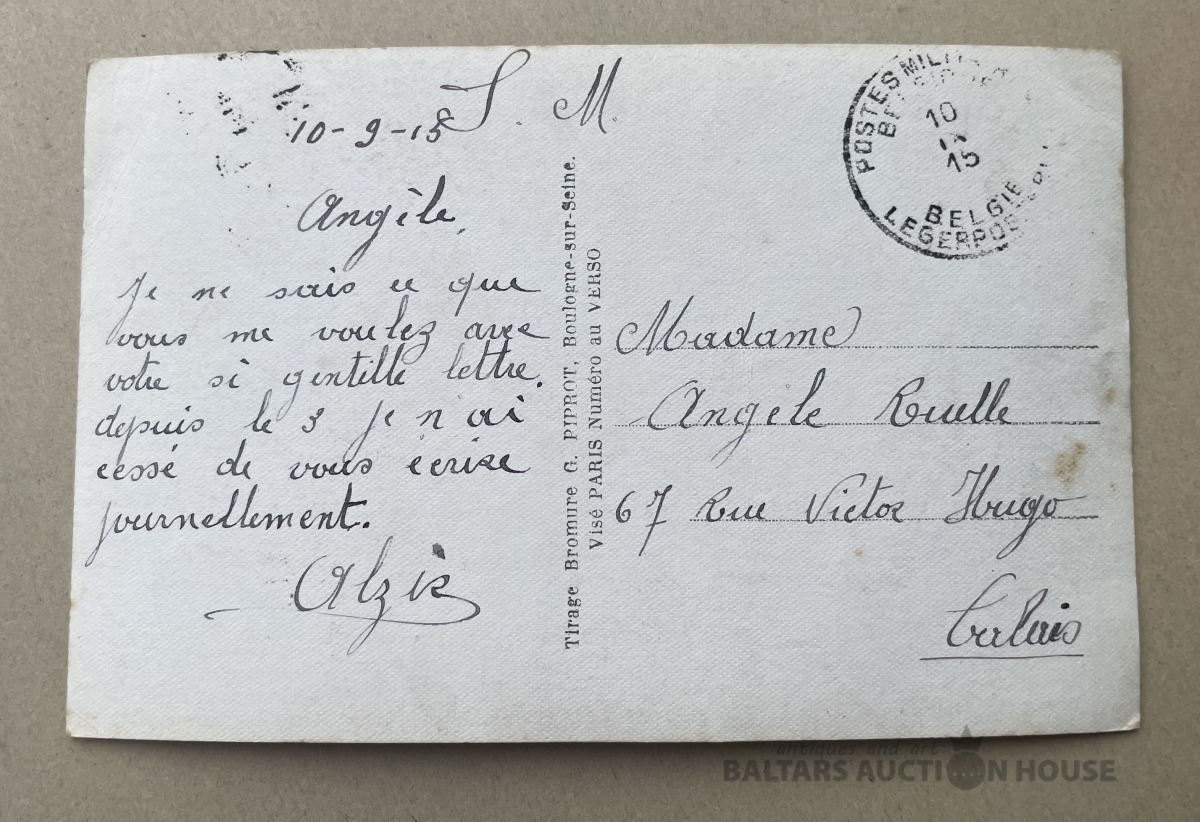 10-9-15 S. M.
Angèle,
Je ne sais ce que
vous me voulez avec
votre si gentille lettre.
depuis le 3 je n'ai
cessé de vous écrire
journellement.
Alzir
Tirage Bromure G. PIPROT, Boulogne-sur-Seine.
Visé PARIS Numéro au VERSO
POSTES MILIT
10
IX
15
BELGIE
LEGERPOST
Madame
Angèle Ruelle
67 Rue Victor Hugo
Calais
antiques and art
BALTARS AUCTION HOUSE